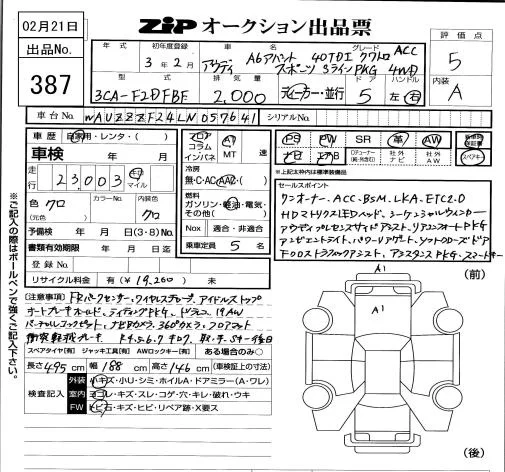 02月21日
ZIP オークション出品票
出品No.
387
評価点
5
内装
A
年式
初年度登録
3年2月
車名
グレード
アウディ A6アバント 40TDI クワトロ ACC
スポーツ SラインPKG 4WD
型式
3CA-F2DFBF
排気量
2,000
ディーラー・並行
ドア
5
ハンドル
左・右
車台No. WAUZZZF24LN057641
シリアルNo.
車歴 自家用・レンタ・( )
車検 年 月
走行 23,003 キロ マイル
色 クロ
(元色)
カラーNo.
内装色 クロ
予備検付 年 月 日(3・8)No.
書類有効期限 年 月 日迄
登録No.
リサイクル料金 有(¥19,260) 未
フロア
コラム
インパネ
AT
MT 速
冷房
無・C・AC・AAC・( )
燃料
ガソリン・軽油・電気・
その他( )
Nox 適合・非適合
乗車定員 5 名
PS PW SR 革 AW
ナビ エアB
ディーラー(純・社含む)
社外ナビ
社外AW
新車時保証書
スペアキー
※上記太枠内は標準装備品
セールスポイント
ワンオーナー、ACC、BSM、LKA、ETC2.0
HDマトリクスLEDヘッド、シーケンシャルウィンカー
アウディプレセンスサイドアシスト、リアコンフォートPKG
アンビエントライト、パワーリアゲート、ソフトクローズドア
アシスタンスPKG、スマートキー
[注意事項] FRパークセンサー、ワイヤレスチャージ、アイドルストップ
オートブレーキホールド、ライティングPKG、ドラレコ、19AW
360°カメラ、フロアマット
衝突軽減ブレーキ
スペアタイヤ[有] ジャッキ工具[有] AWロックキー[有] ある場合のみ○
長さ495cm 幅188cm 高さ146cm (車検証上の寸法)
検査記入
外装 小キズ・小U・シミ・ホイルA・ドアミラー(A・ワレ)
室内 ヨゴレ・キズ・スレ・コゲ・穴・キレ・破れ・ウキ
FW トビ石・キズ・ヒビ・リペア跡・X要ス
※ご記入の際はボールペンで強くご記入下さい。
A1
(前)
A1
(後)